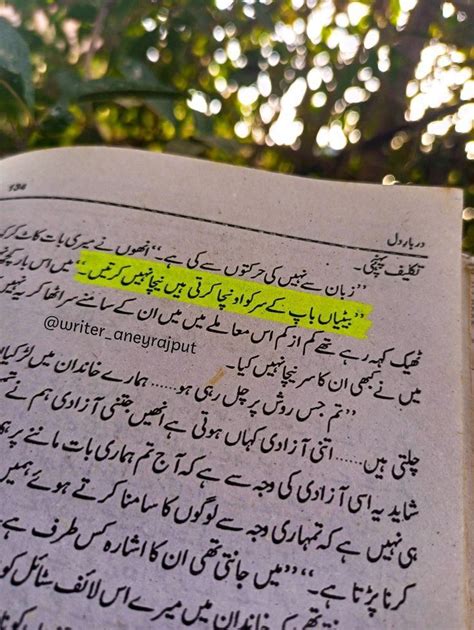 134
دربارِ دل
تکلیف پہنچی۔
’’زبان سے نہیں کی حرکتوں سے کی ہے۔‘‘ انھوں نے میری بات کاٹ کر
’’بیٹیاں باپ کے سر کو اونچا کرتی ہیں نیچا نہیں کرتیں۔‘‘ میں اس بار کچھ
ٹھیک کہہ رہے تھے کم از کم اس معاملے میں میں ان کے سامنے سر اٹھا کر یہ نہیں
@writer_aneyrajput
میں نے کبھی ان کا سر نیچا نہیں کیا۔
’’تم جس روش پر چل رہی ہو...... ہمارے خاندان میں لڑکیاں
چلتی ہیں...... اتنی آزادی کہاں ہوتی ہے انھیں جتنی آزادی ہم نے تم
شاید یہ اسی آزادی کی وجہ سے ہے کہ آج تم ہماری بات ماننے پر
ہی نہیں ہے کہ تمہاری وجہ سے لوگوں کا سامنا کرتے ہوئے ہمیں
کرنا پڑتا ہے۔‘‘ ’’میں جانتی تھی ان کا اشارہ کس طرف ہے۔
خاندان میں میرے اس لائف سٹائل کو